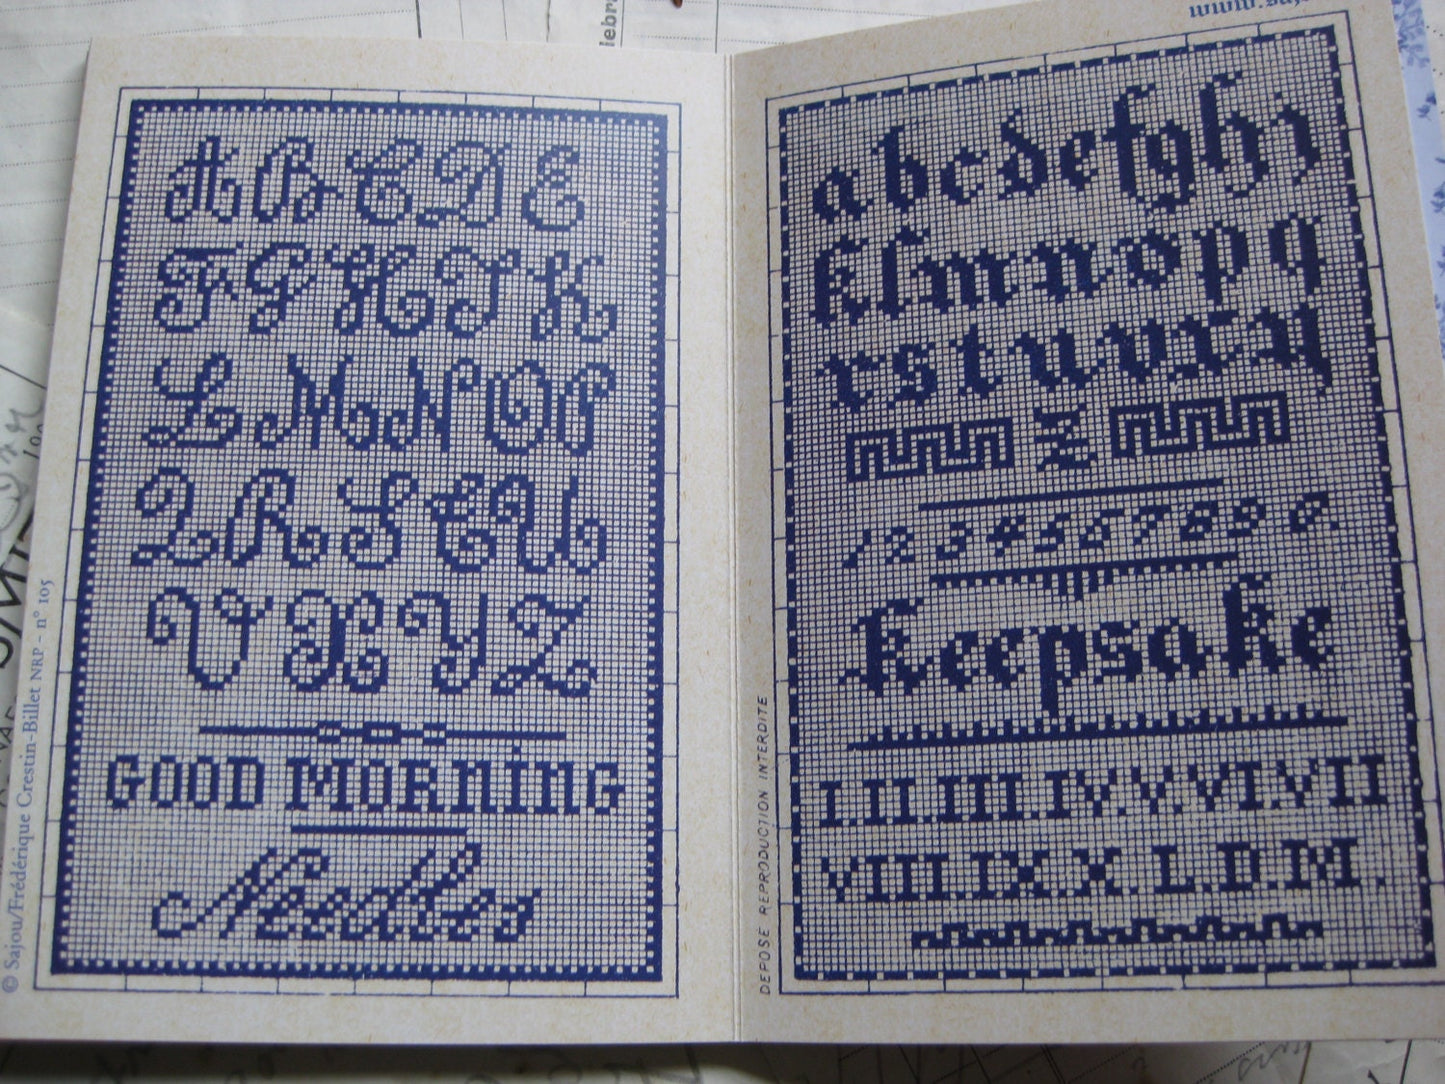 A B C D E
F G H J K
L M N O P
Q R S T U
V X Y Z
GOOD MORNING
Needles
© Sajou/Frédérique Crestin-Billet NRP - n° 105
a b c d e f g h i
k l m n o p q
r s t u v x y
z
1 2 3 4 5 6 7 8 9 0
Keepsake
I.II.III.IV.V.VI.VII
VIII.IX.X.L.D.M.
DEPOSÉ REPRODUCTION INTERDITE